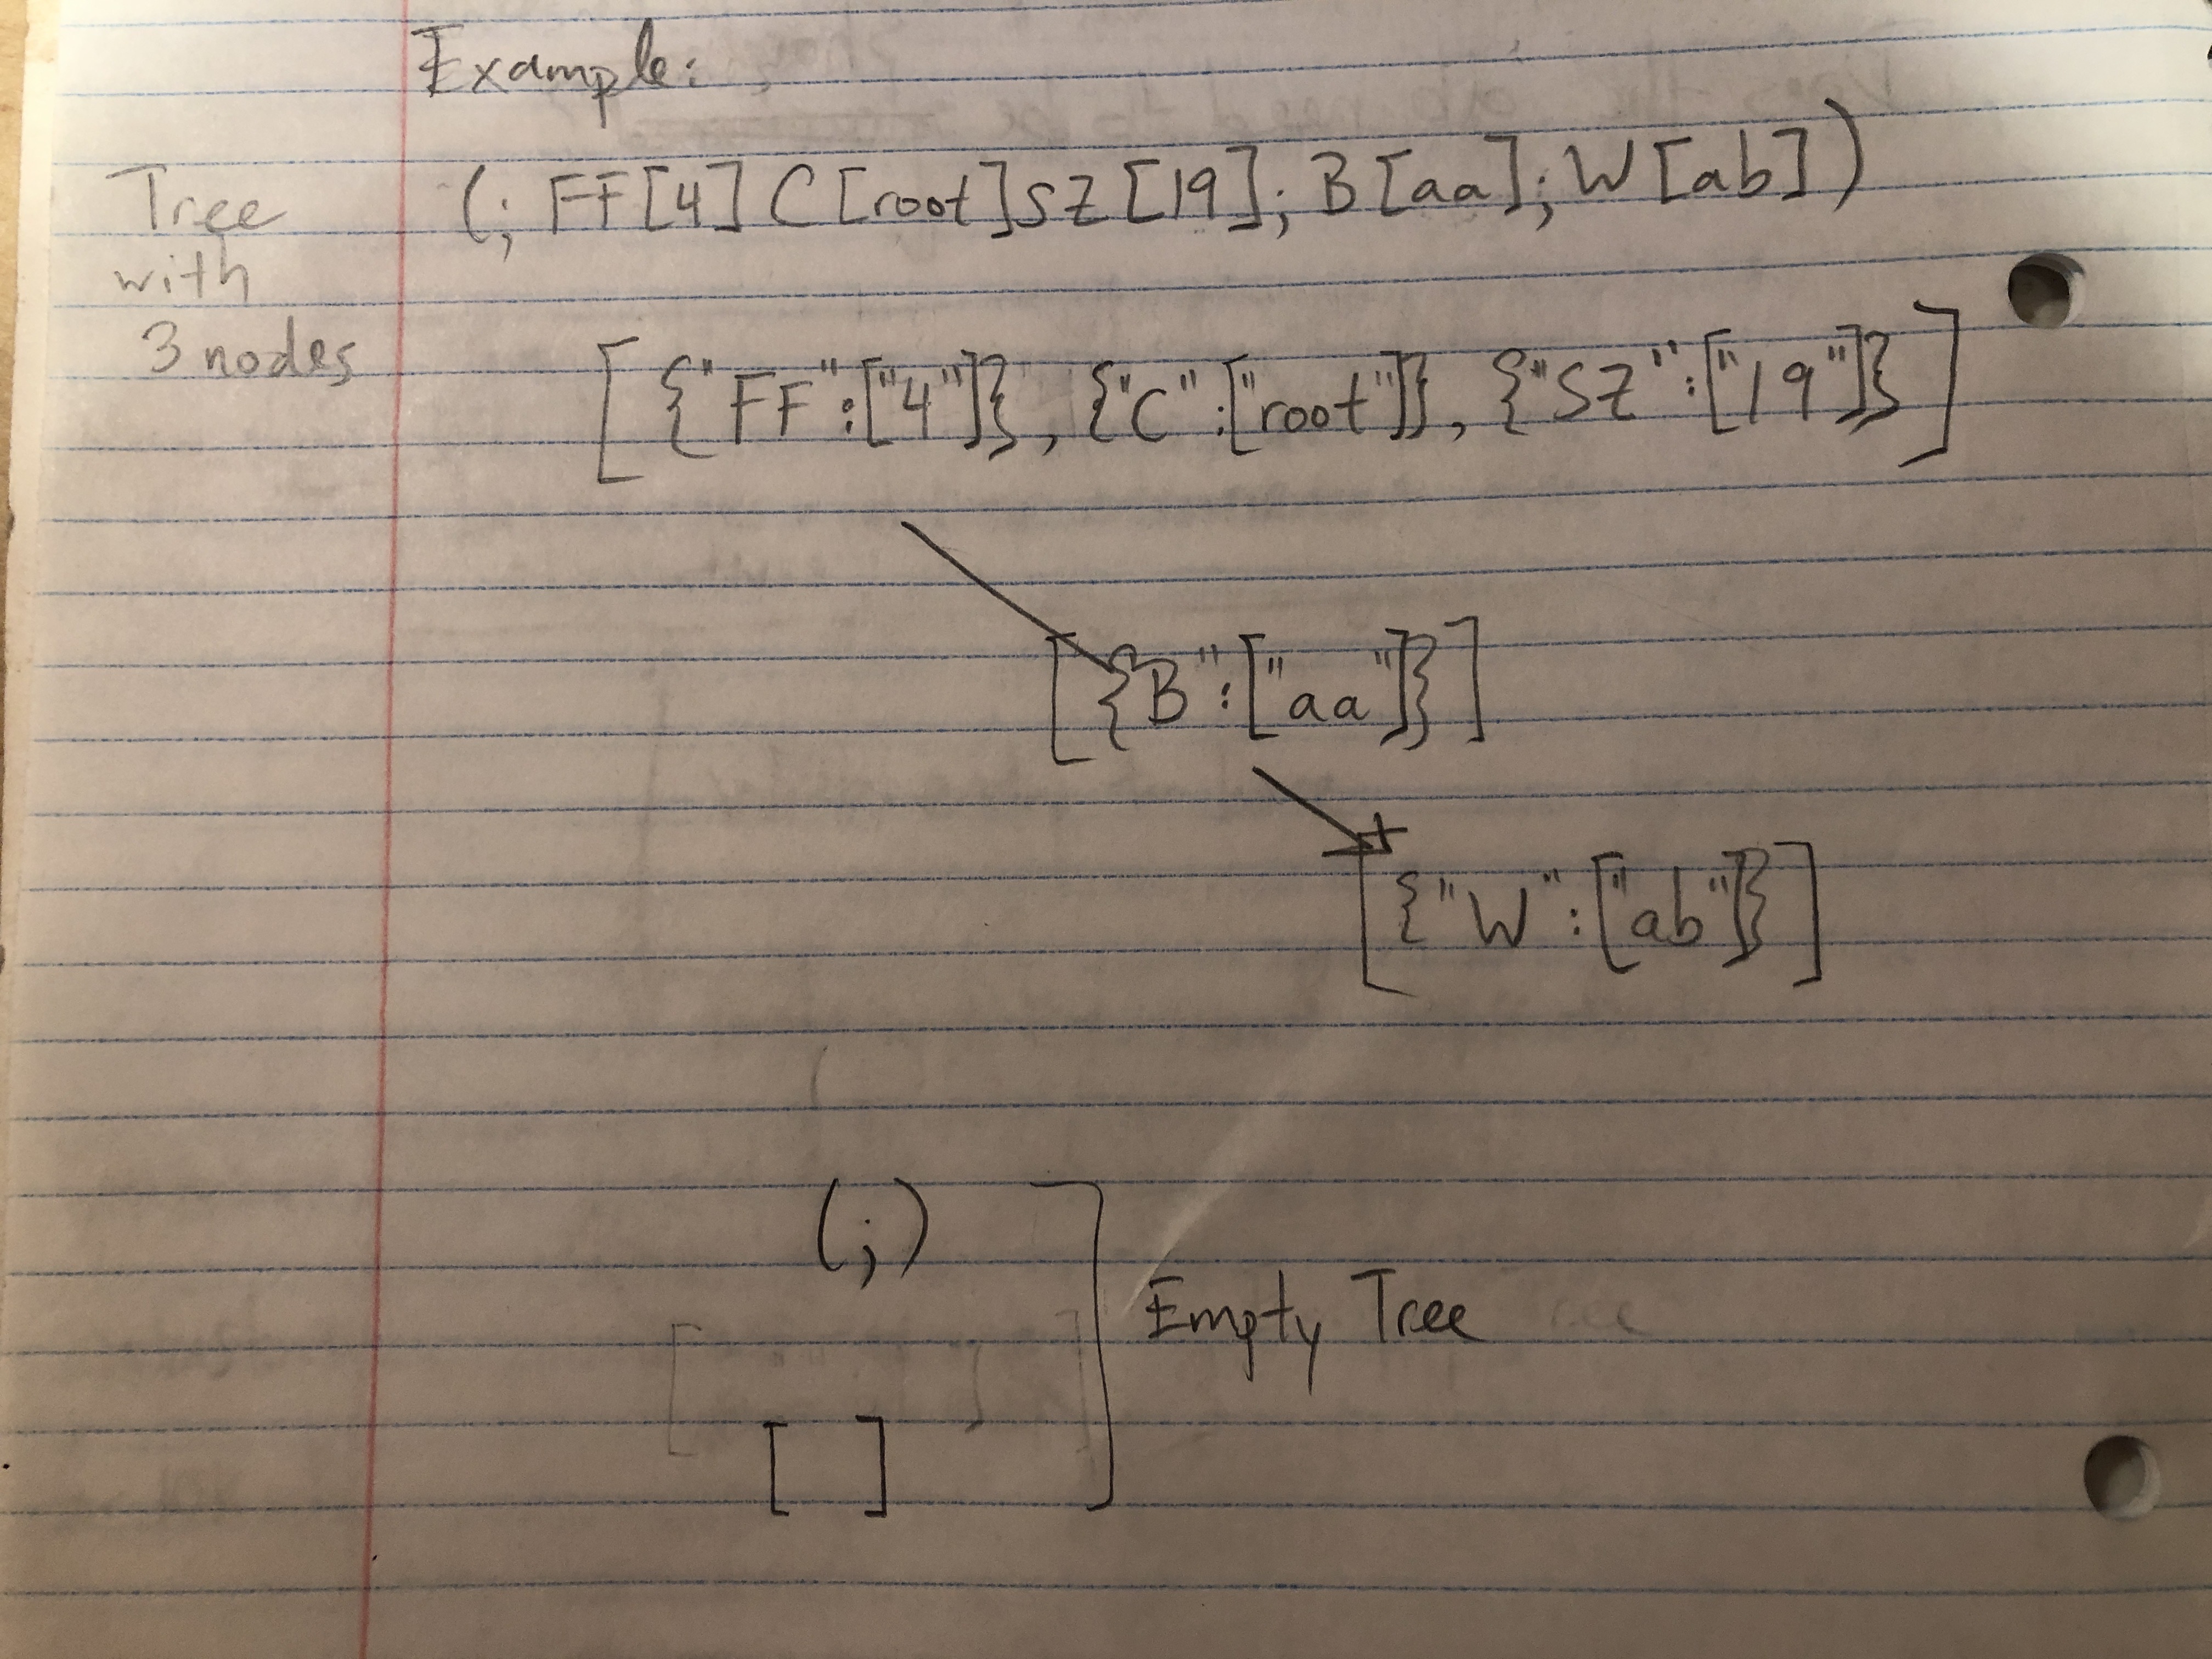 Example:
Tree with 3 nodes
(; FF[4] C[root]SZ[19]; B[aa]; W[ab])
[{"FF":["4"]}, {"C":["root"]}, {"SZ":["19"]}]
[{B":["aa"]}]
[{"W":["ab"]}]
(;)
Empty Tree
[ ]